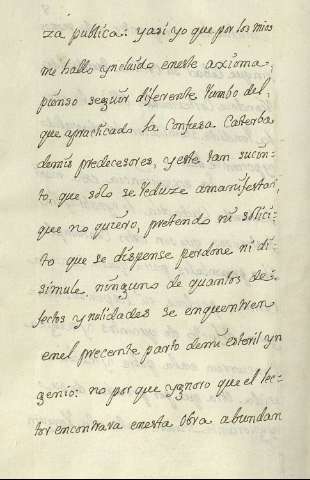 za publica: y asi yo que por los mios
me hallo yncluido eneste axioma,
pienso seguir diferente rumbo del,
que apracticado la Confusa Caterba
demis predecesores, y este tan sucin-
to, que solo se reduze amanifestar,
que no quiero, pretendo ni solici-
to que se dispense perdone ni di-
simule ninguno de quantos de-
fectos y nulidades se enquentren
enel precente parto demi esteril yn
genio: no por que ygnoro que el lec-
tor encontrara enesta Obra abundan